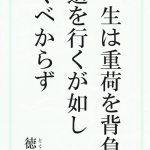 生は重荷を背負
道を行くが如し
べからず
徳
とく